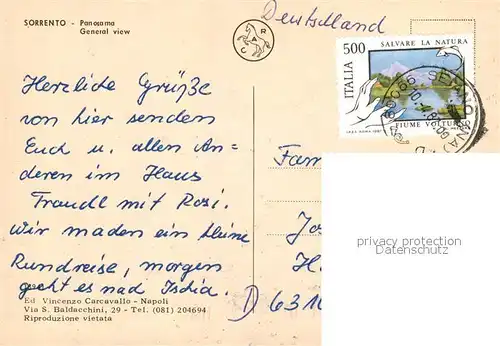 SORRENTO - Panorama
General view
C A R
Deutschland
500
SALVARE LA NATURA
ITALIA
FIUME VOLTURNO
Herzliche Grüße
von hier senden
Euch u. allen An-
deren im Haus
Traudl mit Rosi.
Wir maden ein kleine
Rundreise, morgen
geht es nad Isdia.
Fam
Jos
H.
D 6310
privacy protection
Datenschutz
Ed Vincenzo Carcavallo - Napoli
Via S. Baldacchini, 29 - Tel. (081) 204694
Riproduzione vietata